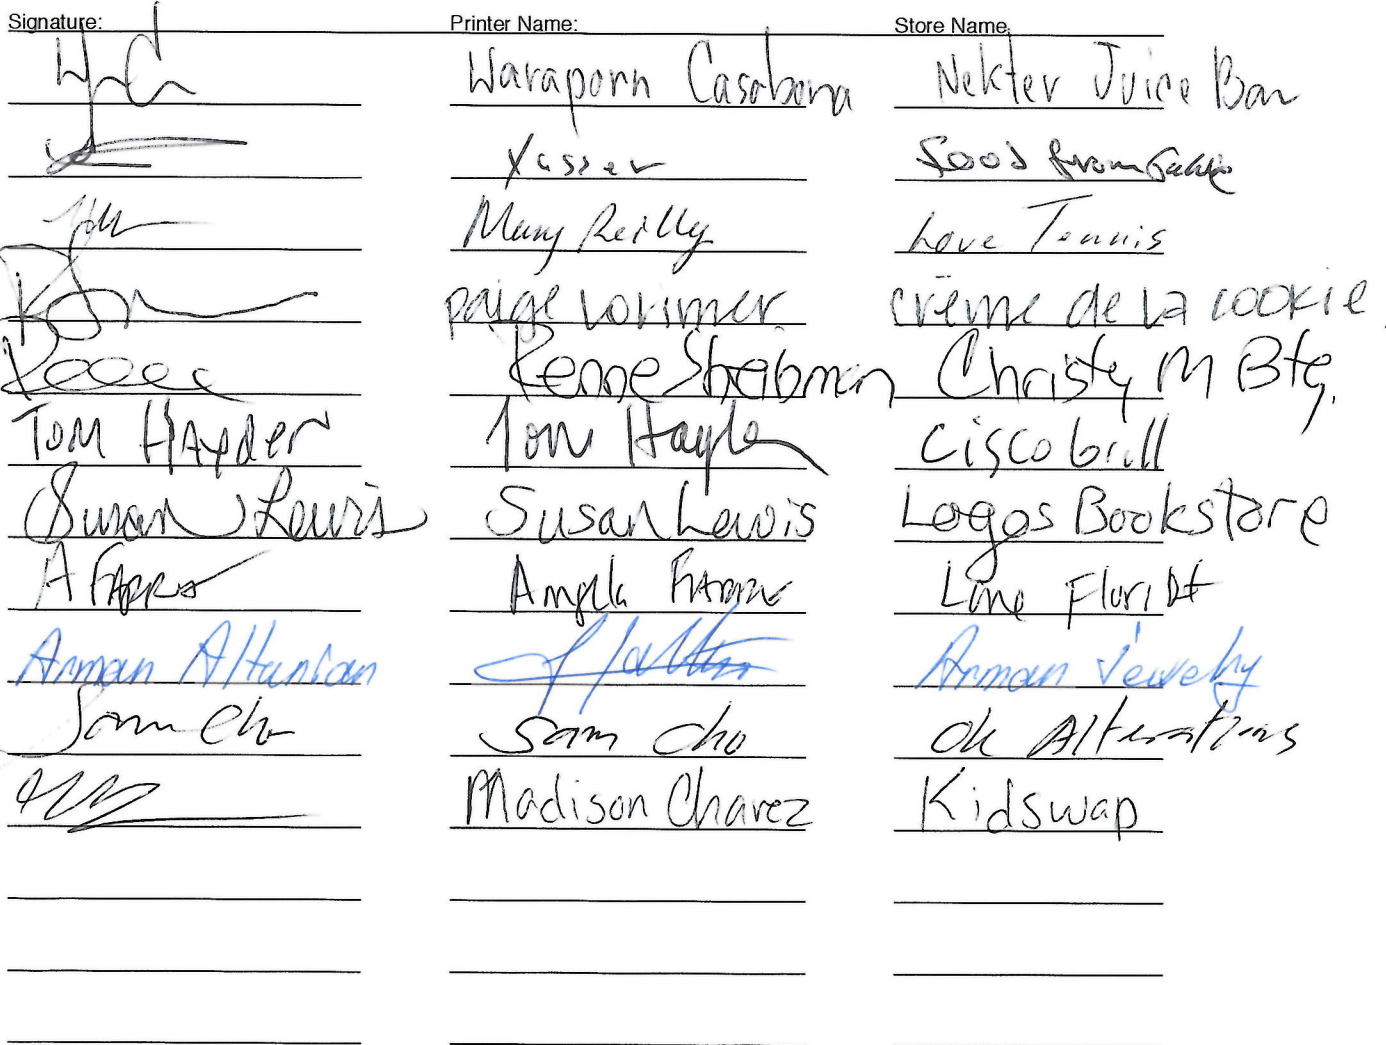 Signature: Printer Name: Store Name
Waraporn Casabona Nekter Juice Bar
Yasser Food from
Mary Reilly Love Tennis
paige lorimer crème de la cookie
Renee Sheibman Christy M Btq.
Tom Hayder Tom Cisco Grill
Susan Lewis Susan Lewis Logos Bookstore
A Angela Florist
Arman Altunian Arman Jewelry
Sam Cho Sam Cho Ok Alterations
Madison Chavez Kidswap